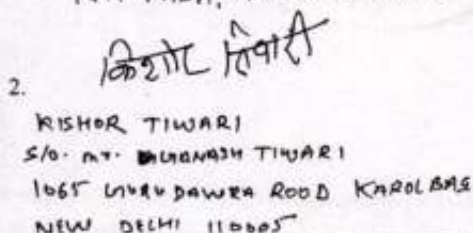 किशोर तिवारी
2.
KISHOR TIWARI
S/O. MR. TIWARI
1065 GURUDAWRA ROOD KAROL BAG
NEW DELHI 110005